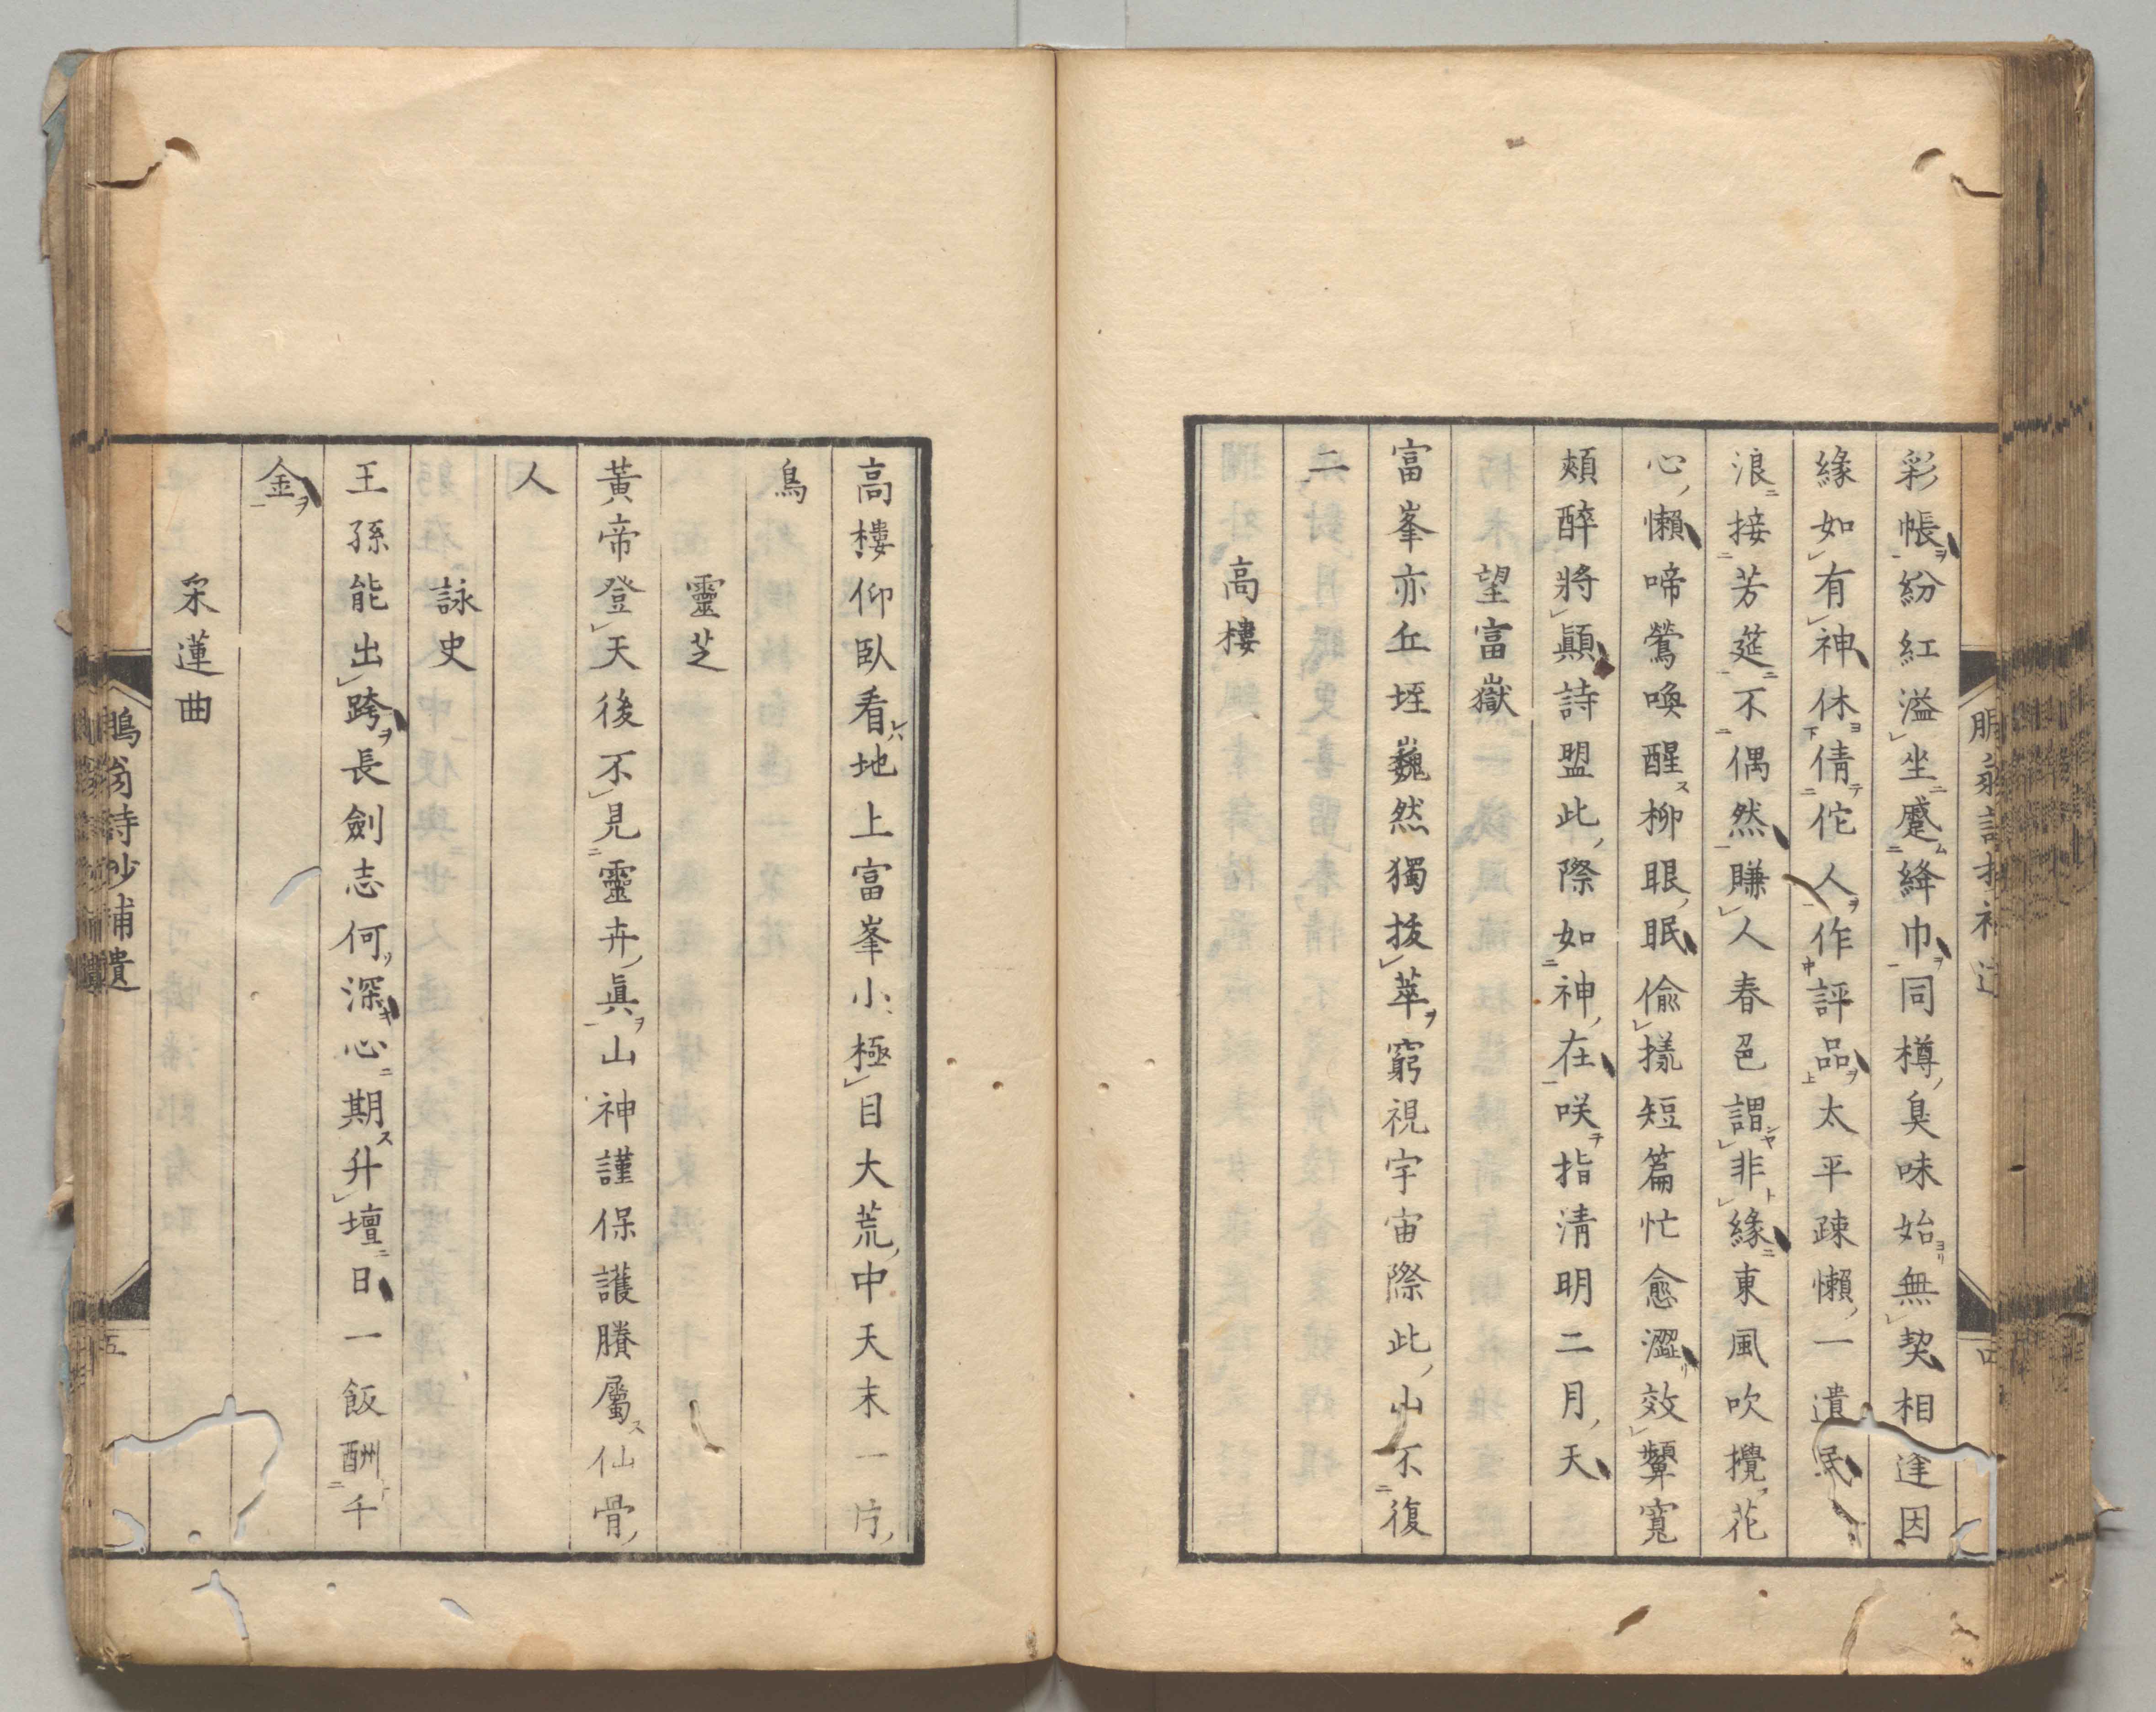 彩帳紛紅溢坐蹙絳巾同樽臭味始無契相逢因
緣如有神休倩佗人作評品太平疎懶一遺民
浪接芳筵不偶然賺人春色謂非緣東風吹攪花
心懶啼鶯喚醒柳眼眠偸樣短篇忙愈澀效顰寬
頰醉將顚詩盟此際如神在咲指淸明二月天
望富嶽
富峯亦丘垤巍然獨拔萃窮視宇宙際此山不復
二
高樓
高樓仰臥看地上富峯小極目大荒中天末一片
鳥
靈芝
黃帝登天後不見靈卉眞山神謹保護賸屬仙骨
人
詠史
王孫能出跨長劍志何深心期升壇日一飯酬千
金
采蓮曲
鵬翁詩抄補遺
五